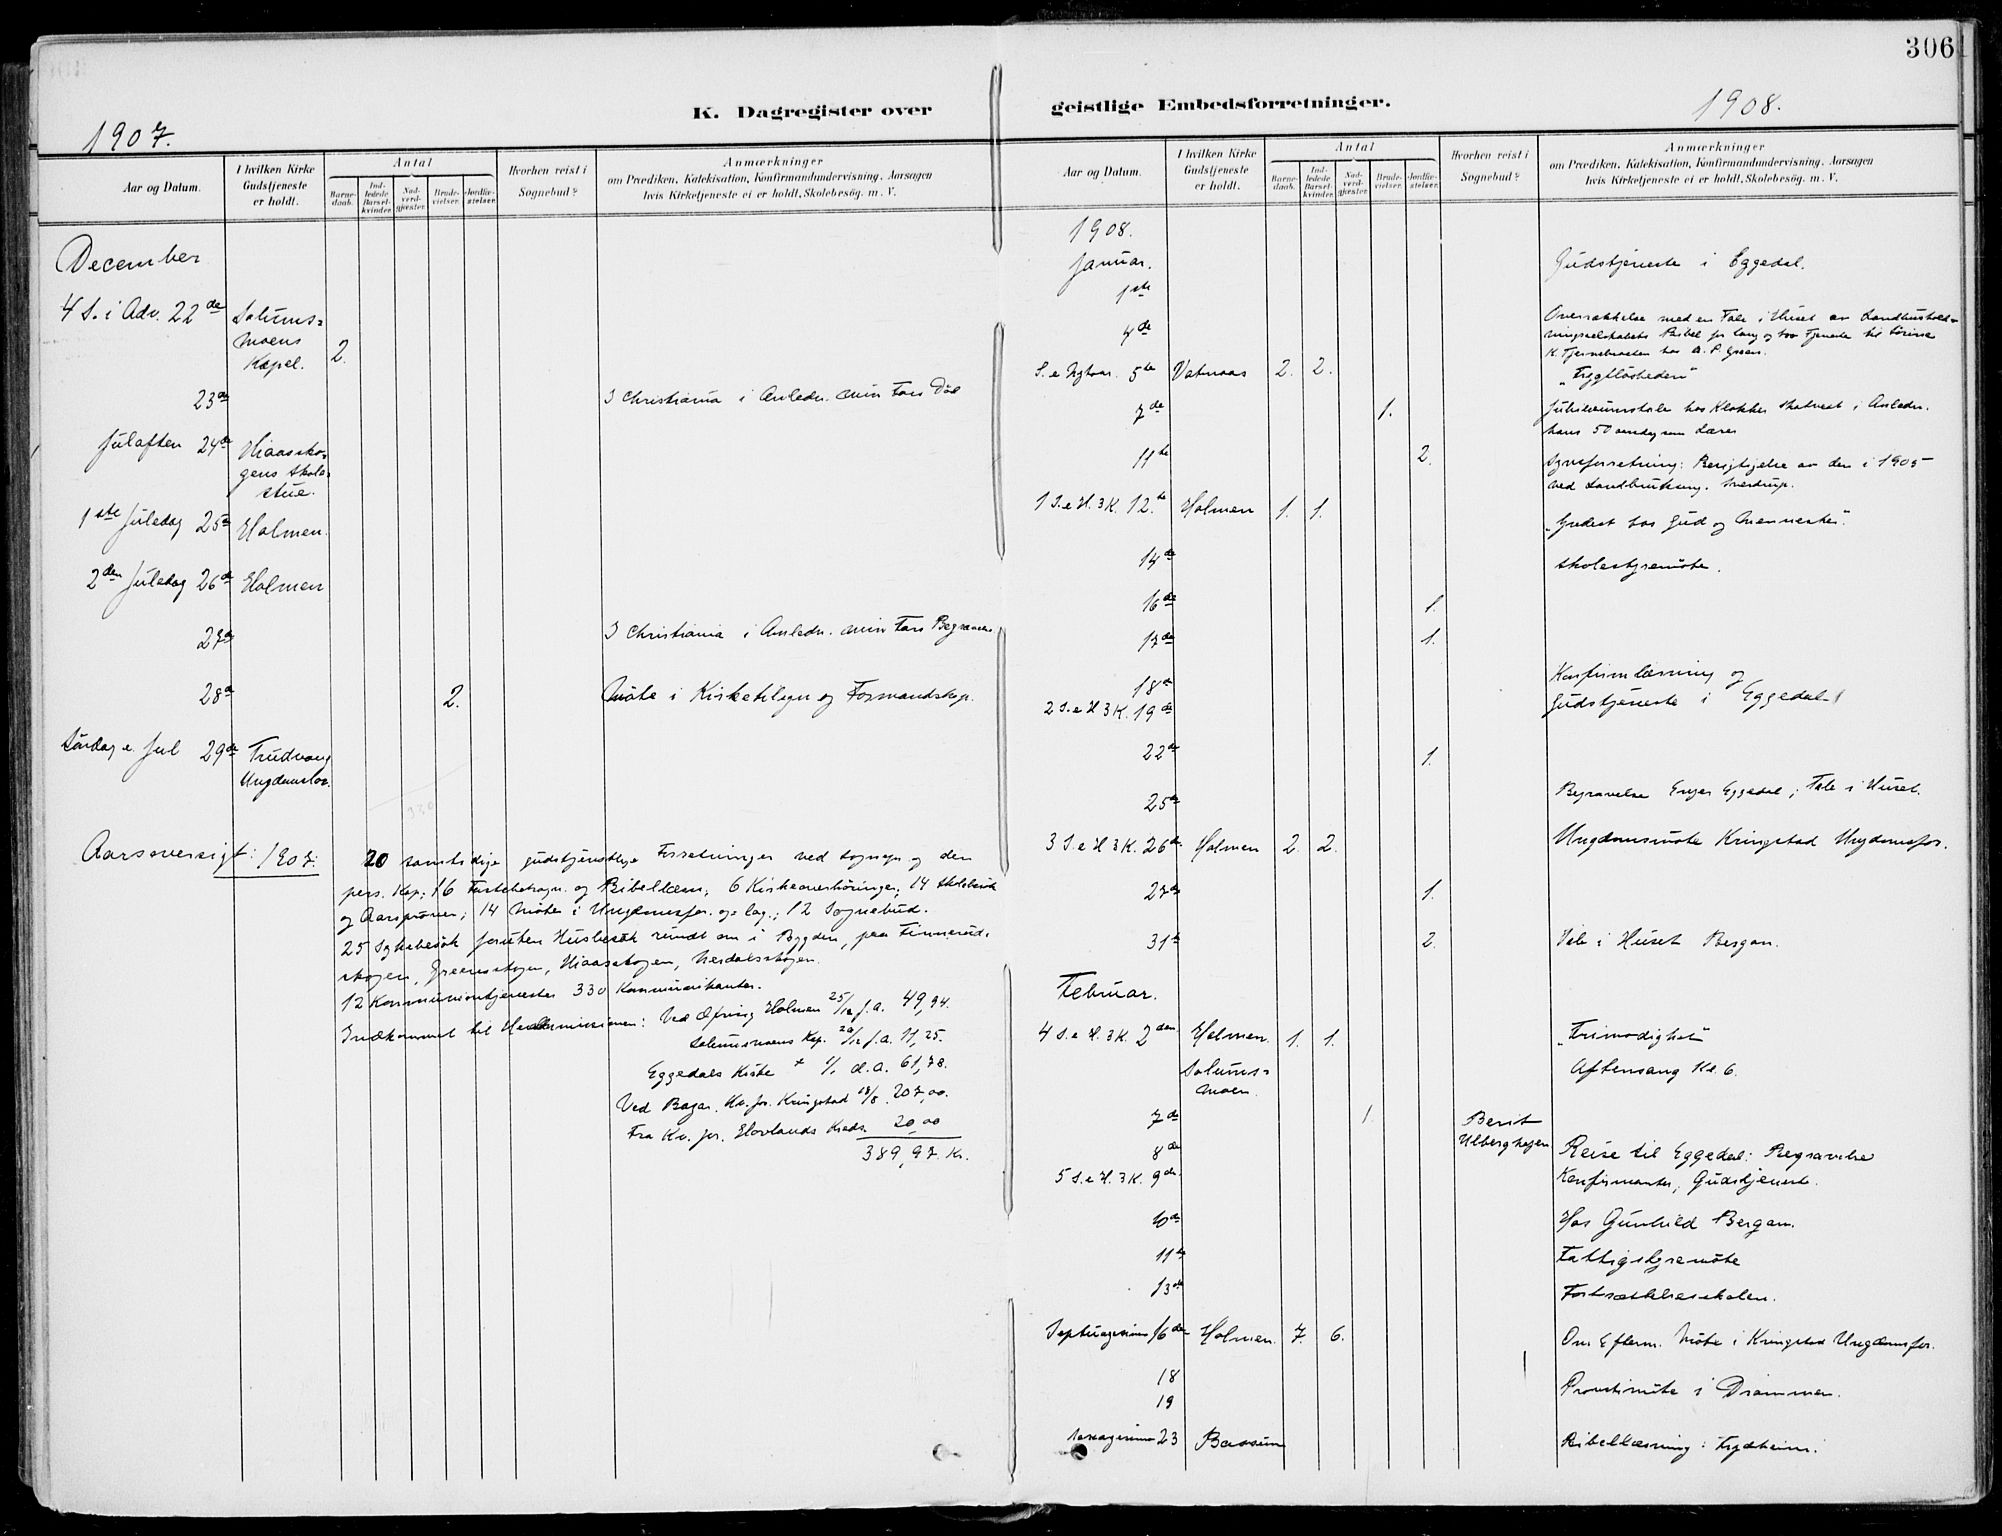 306
K. Dagregister over geistlige Embedsforretninger.
1907.
1908.
Aar og Datum.
I hvilken Kirke
Gudstjeneste
er holdt.
Antal
Barne-
daab.
Ind-
ledede
Barsel-
kvinder.
Nad-
verd-
gjester.
Brude-
vielser.
Jordfæ-
stelser.
Hvorhen reist i
Sognebud?
Anmærkninger
om Prædiken, Katekisation, Konfirmandundervisning, Aarsagen
hvis Kirketjeneste ei er holdt, Skolebesøg. m. V.
December
4 S. i Adv. 22de Solums-
moens
Kapel. 2.
23de I Christiania i Anledn. min Fars Död
Juleaften 24de Hiaassko-
gens Skole-
stue.
1ste Juledag 25de Holmen.
2den Juledag 26de Holmen
27de I Christiania i Anledn. min Fars Begravelse
28de 2. Möte i Kirketilsyn og Formandskap.
Söndag e. Jul 29de Trudvang
Ungdomslok.
330
Aarsoversigt: 1907: 20 samtidige gudstjenstlige Forretninger ved sognepr. og den
pers. Kap; 16 Fastebetragn. og Bibellæsn; 6 Kirkeoverhöringer; 14 Skolebesök
og Aarspröver; 14 Möter i Ungdomsfor. og lag.; 12 Sognebud.
25 Sykebesök foruten Husbesök rundt om i Bygden, paa Finnerud-
skogen, Greensskogen, Hiaasskogen, Nerdalsskogen.
12 Kommuniontjenester 330 Kommunikanter.
Indkommet til Hedenmissionen: Ved Ofring Holmen 25/12 f.a. 49,94.
Solumsmoens Kap. 22/12 f.a. 11,25.
Eggedals Kirke + 1/1 d.a. 61,78.
Ved Bazar. Kv. for. Kringstad 18/8 207,00.
Fra Kv. for. Hovlands Kreds. 20,00
389,97 Kr.
Aar og Datum.
I hvilken Kirke
Gudstjeneste
er holdt.
Antal
Barne-
daab.
Ind-
ledede
Barsel-
kvinder.
Nad-
verd-
gjester.
Brude-
vielser.
Jordfæ-
stelser.
Hvorhen reist i
Sognebud?
Anmærkninger
om Prædiken, Katekisation, Konfirmandundervisning, Aarsagen
hvis Kirketjeneste ei er holdt, Skolebesøg. m. V.
1908.
Januar.
1ste Gudstjeneste i Eggedal.
4de Overrækkelse med en Tale i Huset av Landhushold-
ningsselskabets Bibel for lang og tro Tjeneste til
K. hos A. P. Green.
S. e Nytaar. 5te Vatnaas 2. 2. "Frygtlösheden"
7de 1. Jubilæumstale hos Klokker Skatvedt i Anledn.
hans 50 aarsdag som Lærer
11te 2. Synsforretning: Berigtigelse av den i 1905
ved Landbruksing. Sverdrup.
1 S. e H. 3 K. 12te Holmen 1. 1. "Yndest hos Gud og Mennesker".
14de Skolestyremöte.
16de 1.
17de 1.
18de Konfirm.læsning og
2 S. e H 3 K. 19de Gudstjeneste i Eggedal.
22de 1.
25de Begravelse Enger Eggedal; Tale i Huset.
3 S. e H 3 K. 26de Holmen 2. 2. Ungdomsmöte Kringstad Ungdomsfor.
27de 1.
31te 2. Tale i Huset Bergan.
Februar.
4 S. e H. 3 K. 2den Holmen. 1. 1. "Frimodighet"
Solums-
moen. Aftensang Kl. 6.
7de 1 Berit
Ulberghagen
8de Reise til Eggedal: Begravelse
5 S. e H. 3 K. 9de Konfirmanter, Gudstjeneste.
10de Hos Gunhild Bergan.
11te Fattigstyremöte
13de Fortsættelsesskolen.
Septuagesima 16de Holmen. 7. 6. Om Efterm. Möte i Kringstad Ungdomsfor.
18 Provstimöte i Drammen.
19
Sexagesima 23 Baasum Bibellæsning: Frydheim.